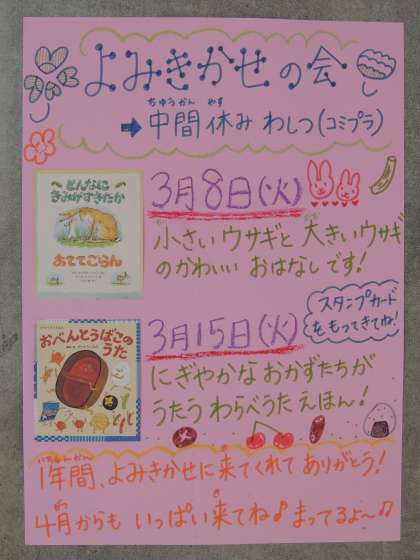 よみきかせの会
ちゅうかん やす
→中間休み わしつ(コミプラ)
どんなに
きみがすきだか
あててごらん
3月8日(火)
小さいウサギと大きいウサギ
のかわいい おはなしです!
スタンプカード
をもってきてね!
おべんとうばこの
うた
3月15日(火)
にぎやかな おかずたちが
うたう わらべうた えほん!
いちねんかん
1年間、よみきかせに来てくれて ありがとう!
4月からも いっぱい来てね♪ まってるよ〜♫